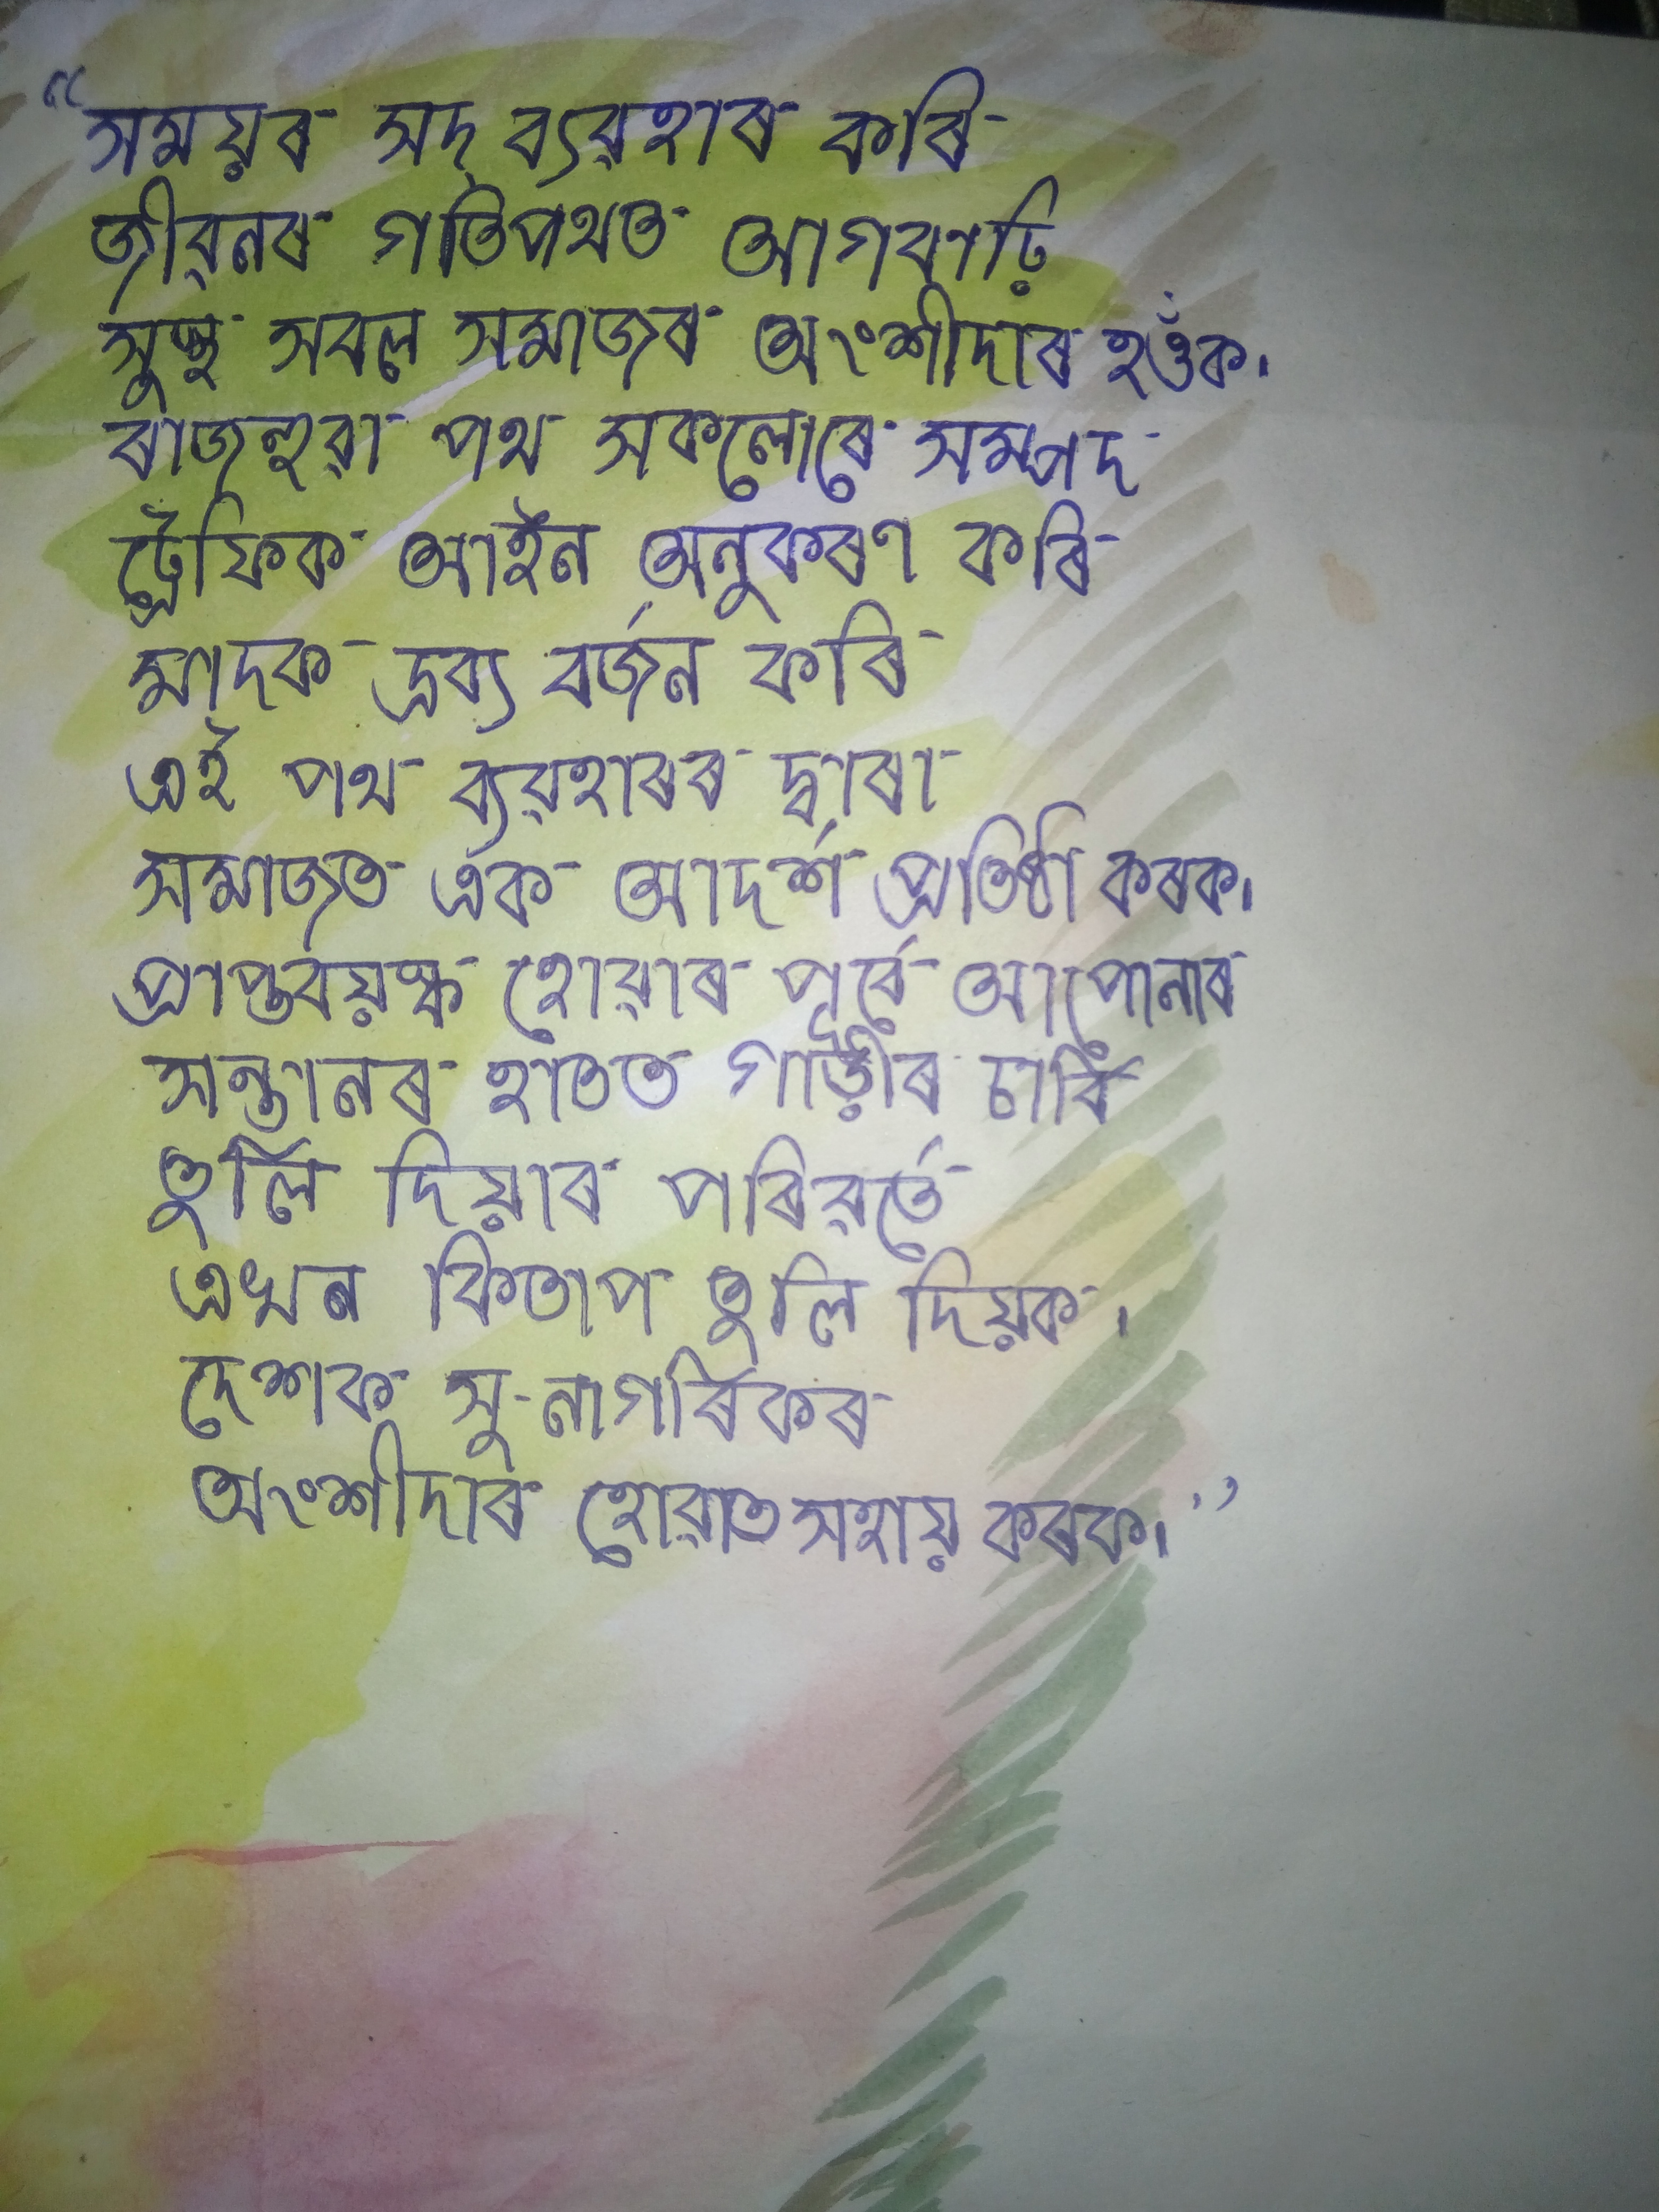 “সময়ৰ সদ্ ব্যৱহাৰ কৰি
জীৱনৰ গতিপথত আগবাঢ়ি
সুস্থ সবল সমাজৰ অংশীদাৰ হওঁক।
ৰাজহুৱা পথ সকলোৰে সম্পদ
ট্ৰেফিক আইন অনুকৰণ কৰি
মাদক দ্ৰব্য বৰ্জন কৰি
এই পথ ব্যৱহাৰৰ দ্বাৰা
সমাজত এক আদৰ্শ প্ৰতিষ্ঠা কৰক।
প্ৰাপ্তবয়স্ক হোৱাৰ পূৰ্বে আপোনাৰ
সন্তানৰ হাতত গাড়ীৰ চাবি
তুলি দিয়াৰ পৰিৱৰ্তে
এখন কিতাপ তুলি দিয়ক।
দেশক সু-নাগৰিকৰ
অংশীদাৰ হোৱাত সহায় কৰক।”